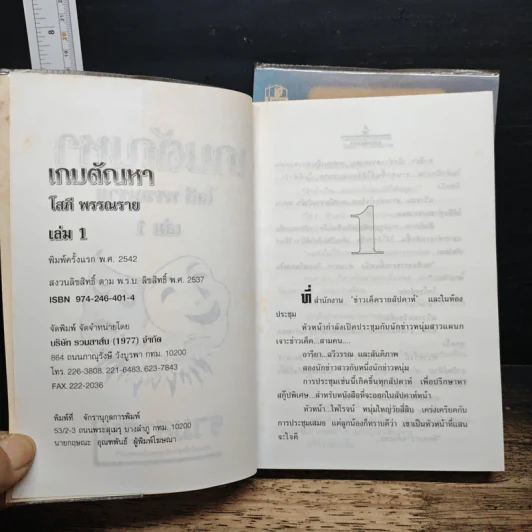 เกมตัณหา
โสภี พรรณราย
เล่ม 1
พิมพ์ครั้งแรก พ.ศ. 2542
สงวนลิขสิทธิ์ ตาม พ.ร.บ. ลิขสิทธิ์ พ.ศ. 2537
ISBN 974-246-401-4
จัดพิมพ์ จัดจำหน่ายโดย
บริษัท รวมสาส์น (1977) จำกัด
864 ถนนภาณุรังษี วังบูรพา กทม. 10200
โทร. 226-3808, 221-6483, 623-7843
FAX. 222-2036
พิมพ์ที่ จักรานุกูลการพิมพ์
53/2-3 ถนนพระสุเมรุ บางลำภู กทม. 10200
นายกฤษณะ อุณหพันธ์ ผู้พิมพ์โฆษณา
1
ที่ สำนักงาน "ข่าวเด็ดรายสัปดาห์" และในห้อง
ประชุม
หัวหน้ากำลังเปิดประชุมกับนักข่าวหนุ่มสาวแผนก
เจาะข่าวเด็ด...สามคน....
อารียา...ฉวีวรรณ และสันติภาพ
สองนักข่าวสาวกับหนึ่งนักข่าวหนุ่ม
การประชุมเช่นนี้เกิดขึ้นทุกสัปดาห์ เพื่อปรึกษาหา
สกู๊ปพิเศษ...สำหรับหนังสือที่จะออกในสัปดาห์หน้า
หัวหน้า...ไพโรจน์ หนุ่มใหญ่วัยสี่สิบ เคร่งเครียดกับ
การประชุมเสมอ แต่ลูกน้องก็ทราบดีว่า เขาเป็นหัวหน้าที่แสน
จะใจดี